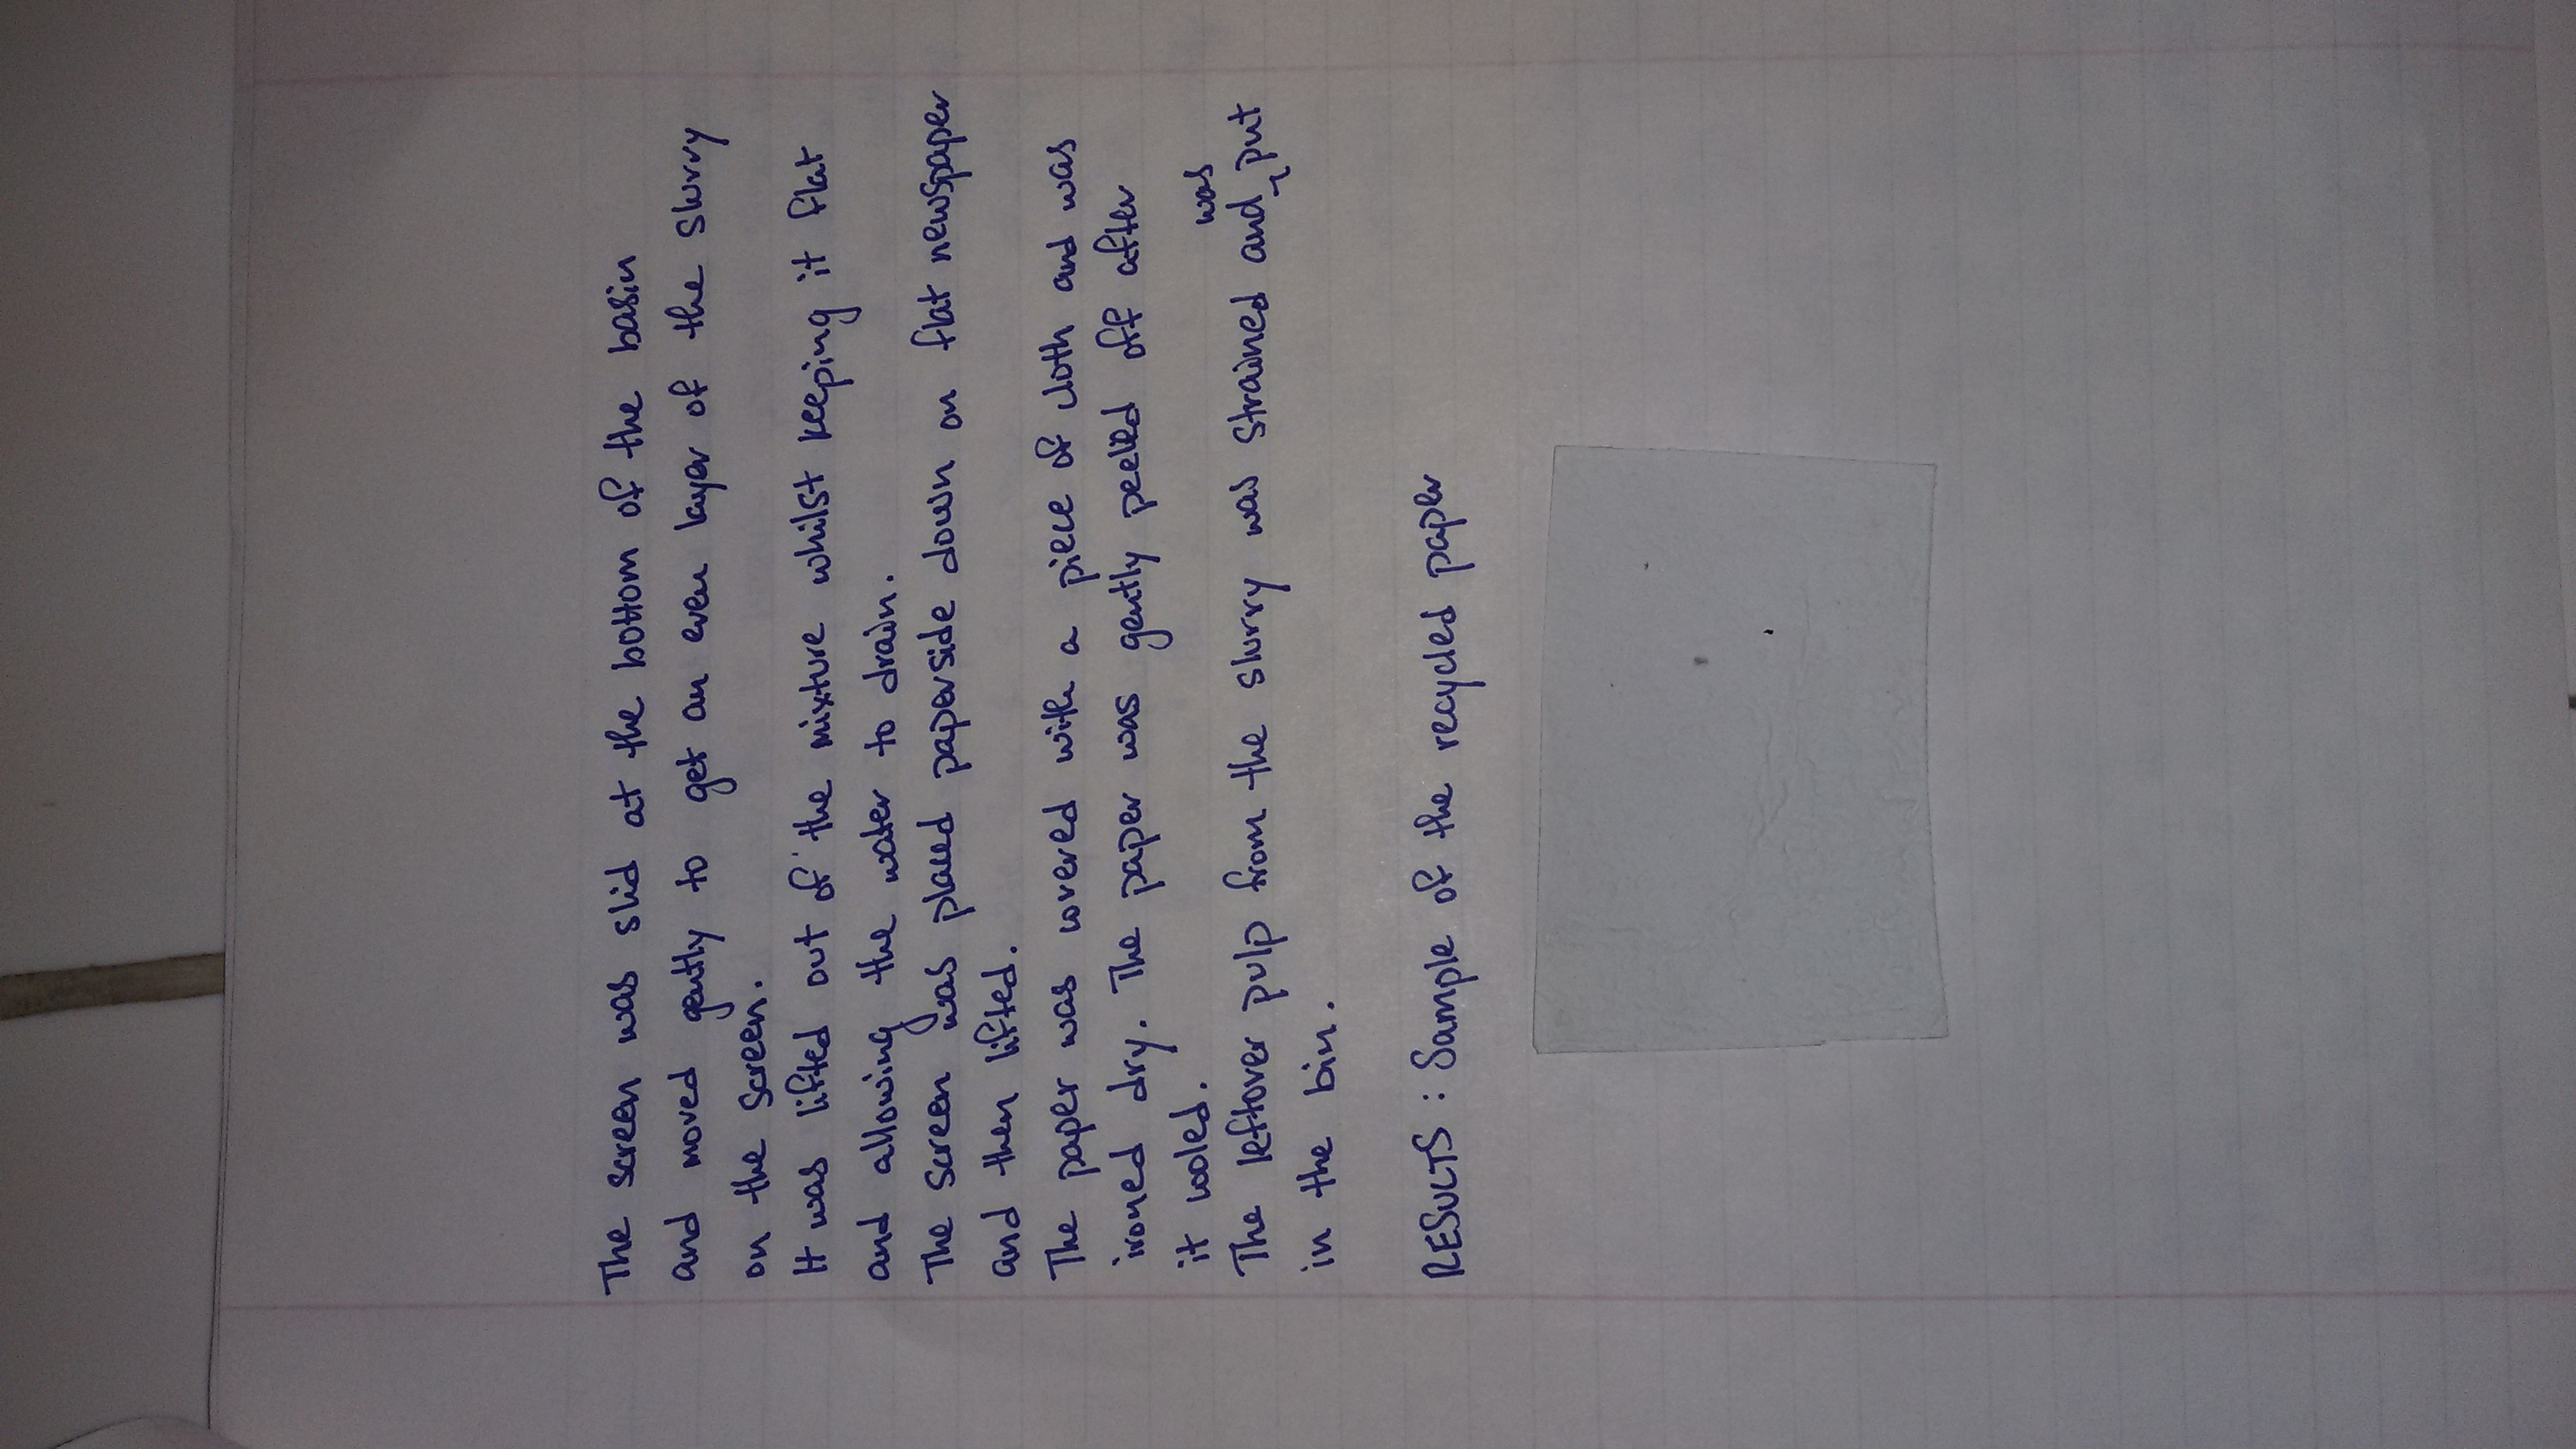 The screen was slid at the bottom of the basin
and moved gently to get an even layer of the slurry
on the screen.
It was lifted out of the mixture whilst keeping it flat
and allowing the water to drain.
The screen was placed paperside down on flat newspaper
and then lifted.
The paper was covered with a piece of cloth and was
ironed dry. The paper was gently peeled off after
it cooled.
The leftover pulp from the slurry was strained and was put
in the bin.
RESULTS : Sample of the recycled paper